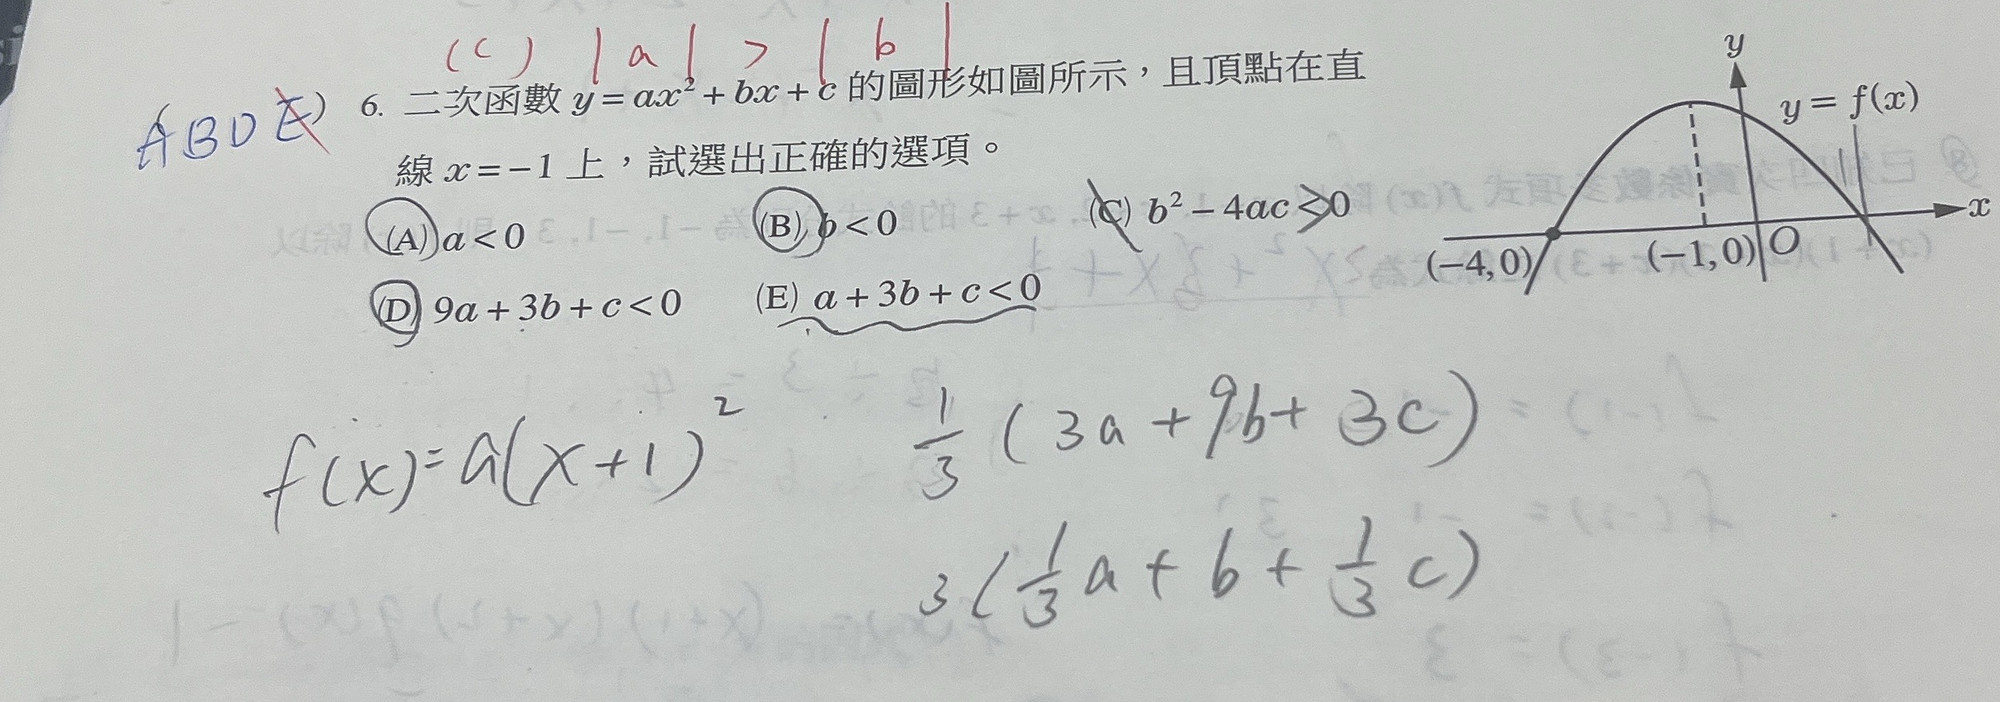 (C) |a| > |b|
(ABDE) 6. 二次函數 y = ax² + bx + c 的圖形如圖所示，且頂點在直
線 x = −1 上，試選出正確的選項。
(A) a < 0 (B) b < 0 (C) b² − 4ac ⩾ 0
(D) 9a + 3b + c < 0 (E) a + 3b + c < 0
y
y = f(x)
x
(−4, 0) (−1, 0) O
f(x) = a(x+1)²
1/3 (3a + 9b + 3c)
3 (1/3 a + b + 1/3 c)